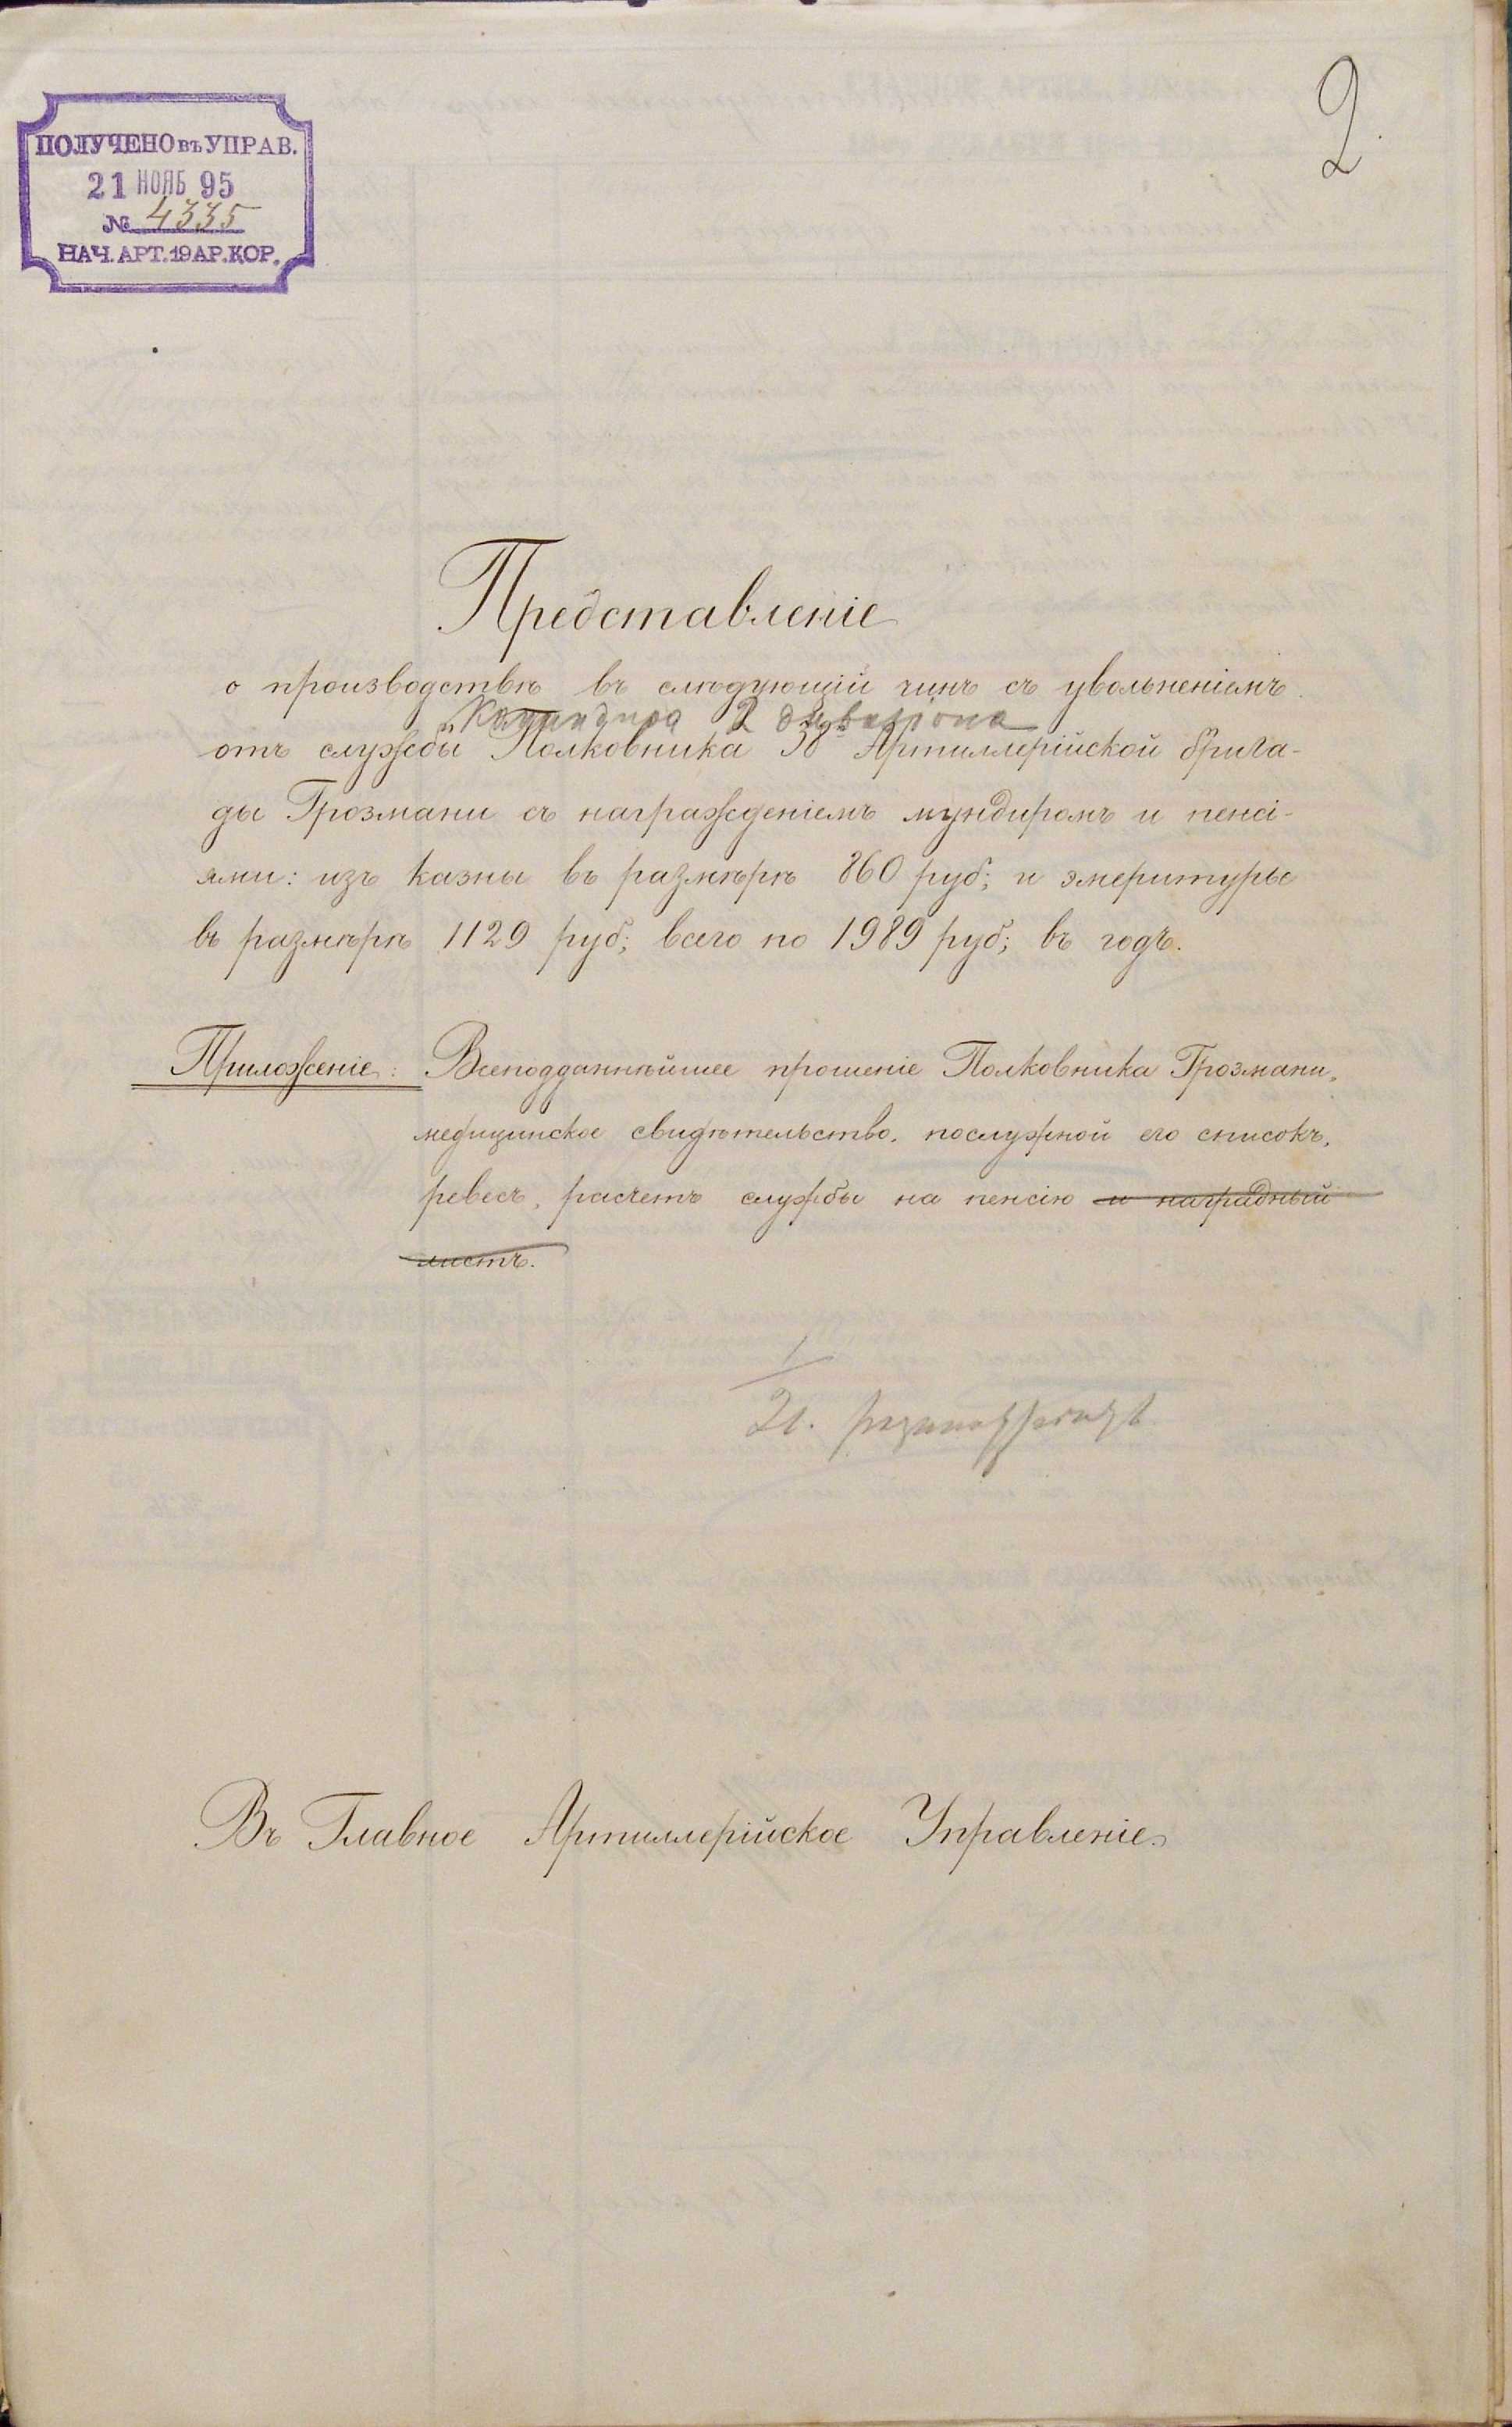 2.
ПОЛУЧЕНО въ УПРАВ.
21 НОЯБ 95
№ 4335
НАЧ. АРТ. 19 АР. КОР.
Представленіе
о производствѣ въ слѣдующій чинъ съ увольненіемъ
Командира 2 дивизіона
отъ службы Полковника 38й Артиллерійской брига-
ды Грозмани съ награжденіемъ мундиромъ и пенсі-
ями: изъ казны въ размѣрѣ 860 руб; и эмеритуры
въ размѣрѣ 1129 руб; всего по 1989 руб; въ годъ.
Приложеніе: Всеподданнѣйшее прошеніе Полковника Грозмани,
медицинское свидѣтельство, послужной его списокъ,
реверсъ, расчетъ службы на пенсію и наградный
листъ.
1
21.
Въ Главное Артиллерійское Управленіе